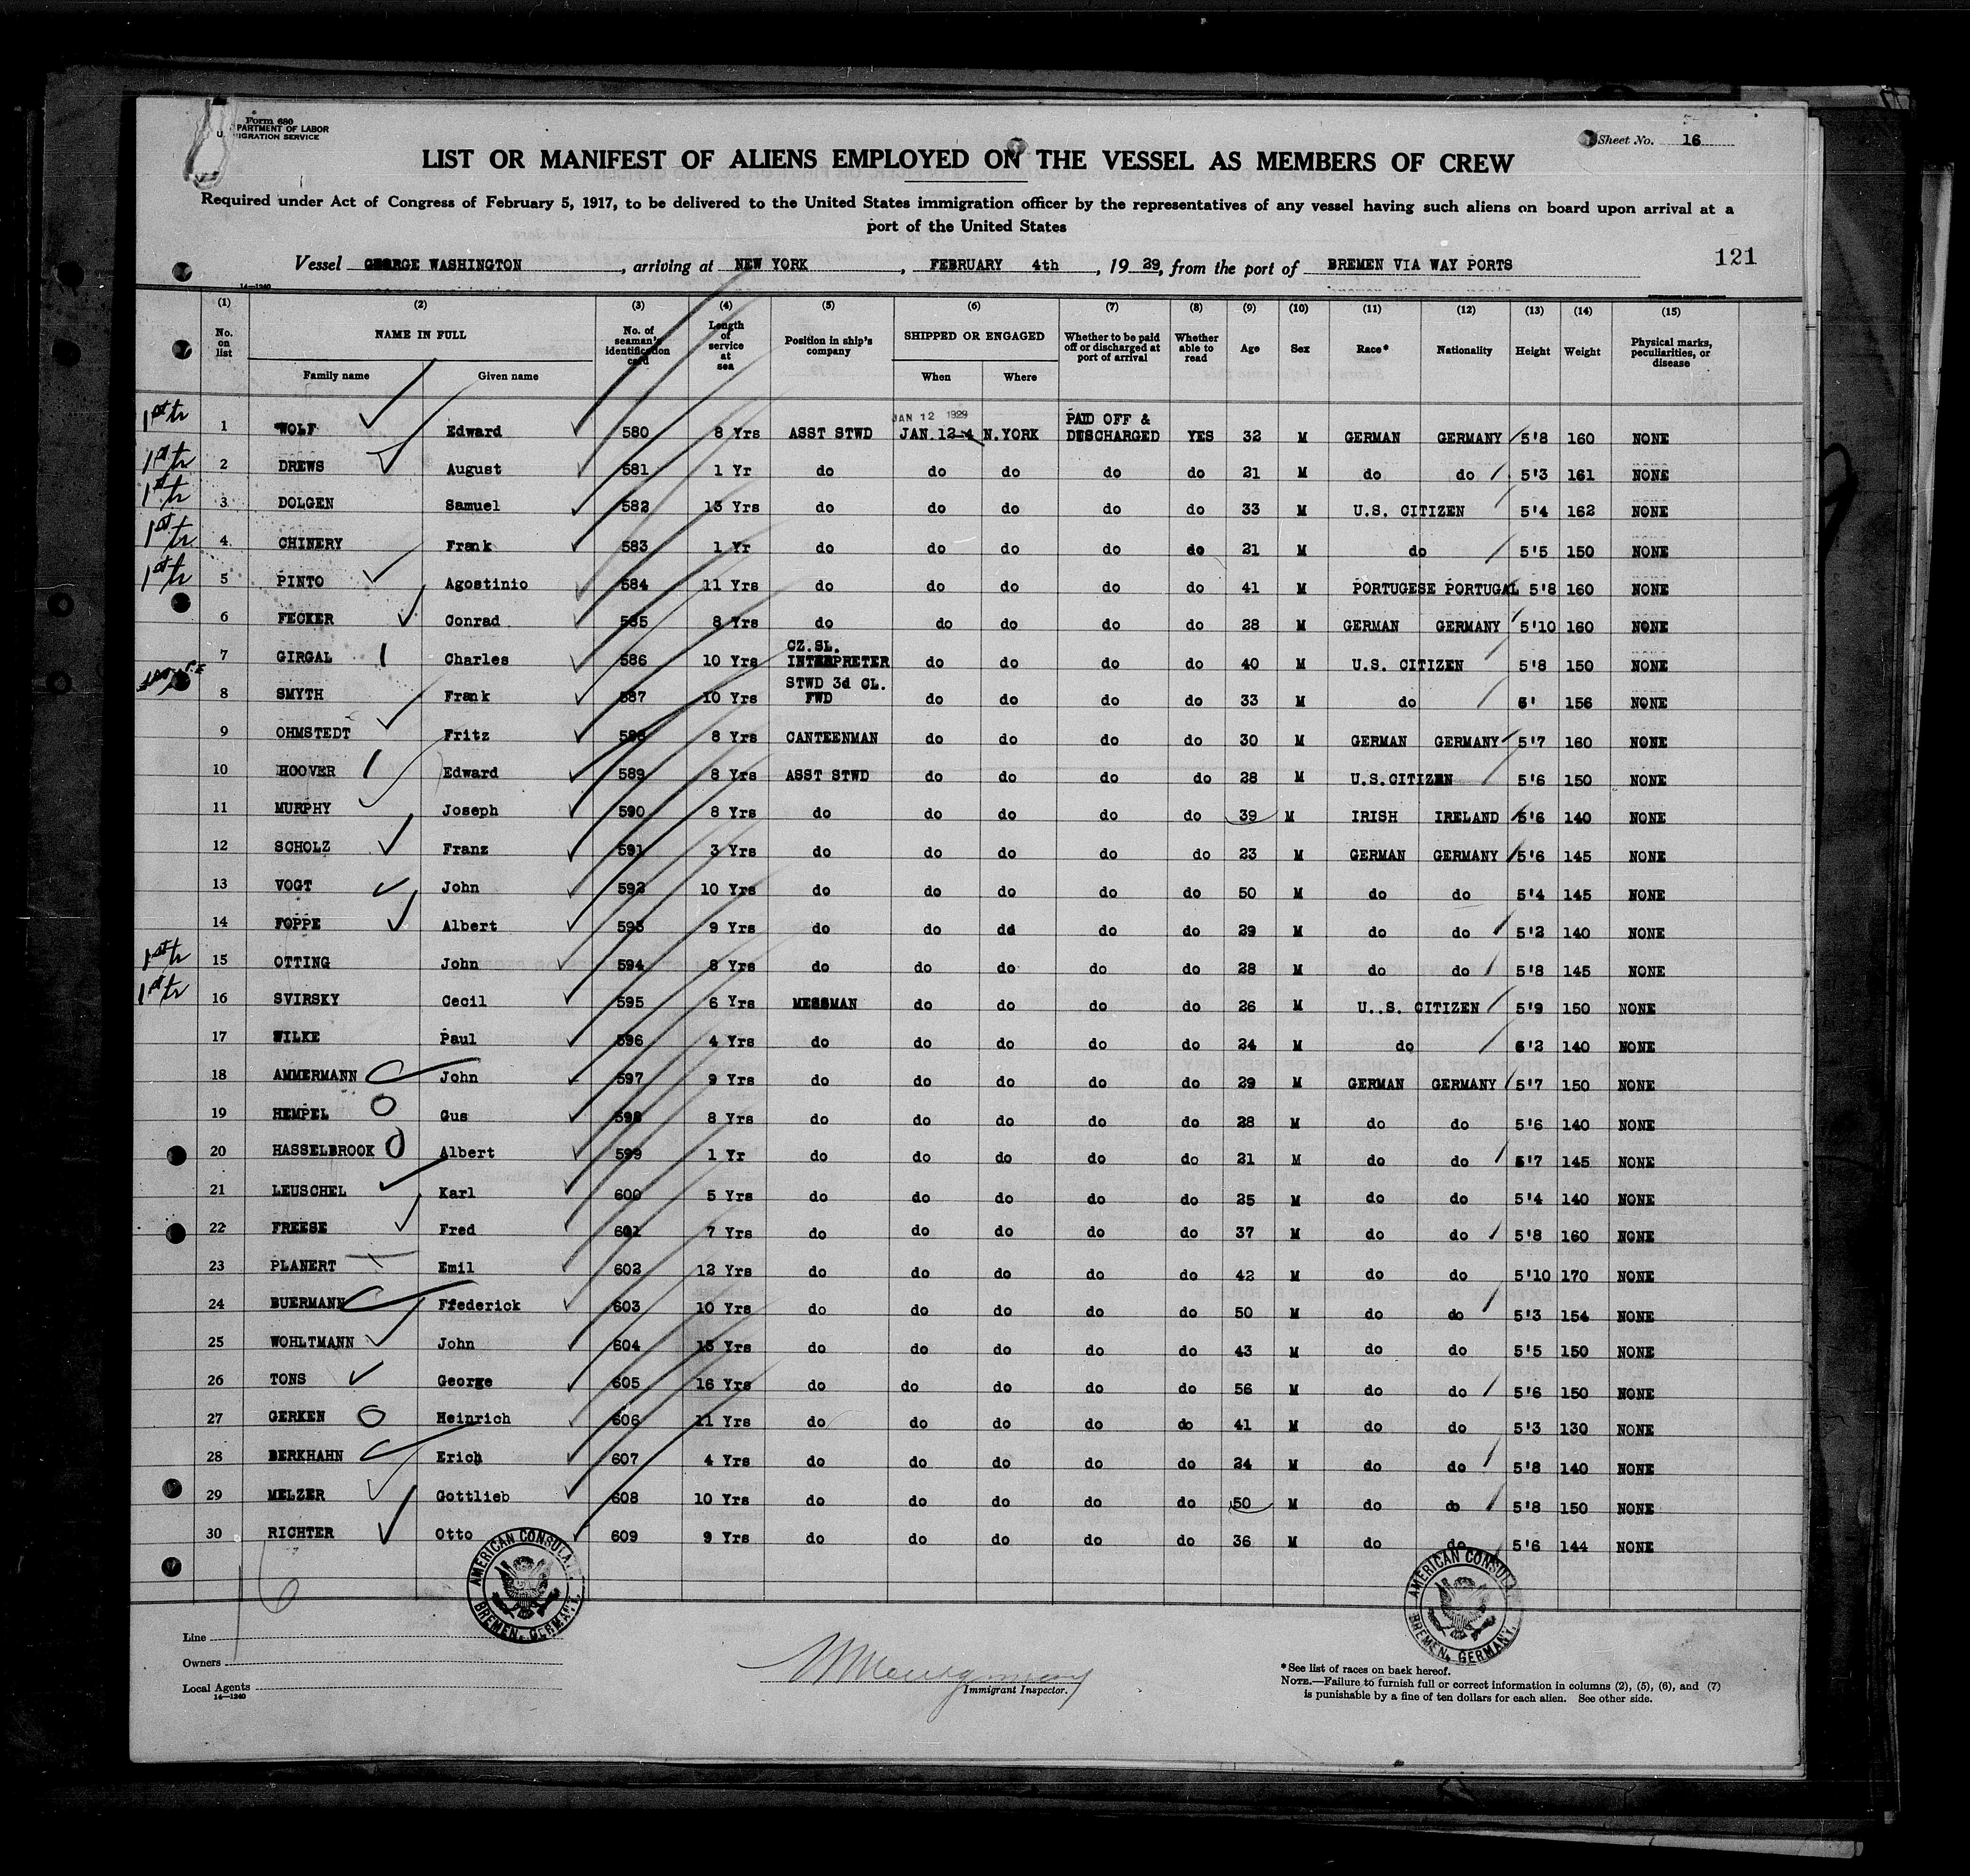 Form 680
U. S. DEPARTMENT OF LABOR
IMMIGRATION SERVICE
Sheet No. 16
LIST OR MANIFEST OF ALIENS EMPLOYED ON THE VESSEL AS MEMBERS OF CREW
Required under Act of Congress of February 5, 1917, to be delivered to the United States immigration officer by the representatives of any vessel having such aliens on board upon arrival at a
port of the United States
Vessel GEORGE WASHINGTON, arriving at NEW YORK, FEBRUARY 4th, 1929, from the port of BREMEN VIA WAY PORTS
121
14—1240
(1) (2) (3) (4) (5) (6) (7) (8) (9) (10) (11) (12) (13) (14) (15)
No. on list NAME IN FULL Family name Given name No. of seaman's identification card Length of service at sea Position in ship's company SHIPPED OR ENGAGED When Where Whether to be paid off or discharged at port of arrival Whether able to read Age Sex Race* Nationality Height Weight Physical marks, peculiarities, or disease
JAN 12 1929
1st tr 1 WOLF Edward 580 8 Yrs ASST STWD JAN.12-4 N.YORK PAID OFF & DISCHARGED YES 32 M GERMAN GERMANY 5'8 160 NONE
1st tr 2 DREWS August 581 1 Yr do do do do do 21 M do do 5'3 161 NONE
1st tr 3 DOLGEN Samuel 582 13 Yrs do do do do do 33 M U.S. CITIZEN 5'4 162 NONE
1st tr 4 CHINERY Frank 583 1 Yr do do do do do 21 M do 5'5 150 NONE
1st tr 5 PINTO Agostinio 584 11 Yrs do do do do do 41 M PORTUGESE PORTUGAL 5'8 160 NONE
6 FECKER Conrad 585 8 Yrs do do do do do 28 M GERMAN GERMANY 5'10 160 NONE
7 GIRGAL Charles 586 10 Yrs CZ.SL. INTERPRETER do do do do 40 M U.S. CITIZEN 5'8 150 NONE
8 SMYTH Frank 587 10 Yrs STWD 3d CL. FWD do do do do 33 M do 6' 156 NONE
9 OHMSTEDT Fritz 588 8 Yrs CANTEENMAN do do do do 30 M GERMAN GERMANY 5'7 160 NONE
10 HOOVER Edward 589 8 Yrs ASST STWD do do do do 28 M U.S.CITIZEN 5'6 150 NONE
11 MURPHY Joseph 590 8 Yrs do do do do do 39 M IRISH IRELAND 5'6 140 NONE
12 SCHOLZ Franz 591 3 Yrs do do do do do 23 M GERMAN GERMANY 5'6 145 NONE
13 VOGT John 592 10 Yrs do do do do do 50 M do do 5'4 145 NONE
14 FOPPE Albert 593 9 Yrs do do dd do do 29 M do do 5'2 140 NONE
1st tr 15 OTTING John 594 8 Yrs do do do do do 28 M do do 5'8 145 NONE
1st tr 16 SVIRSKY Cecil 595 6 Yrs MESSMAN do do do do 26 M U..S. CITIZEN 5'9 150 NONE
17 WILKE Paul 596 4 Yrs do do do do do 24 M do 6'2 140 NONE
18 AMMERMANN John 597 9 Yrs do do do do do 29 M GERMAN GERMANY 5'7 150 NONE
19 HEMPEL Gus 598 8 Yrs do do do do do 28 M do do 5'6 140 NONE
20 HASSELBROOK Albert 599 1 Yr do do do do do 21 M do do 5'7 145 NONE
21 LEUSCHEL Karl 600 5 Yrs do do do do do 25 M do do 5'4 140 NONE
22 FREESE Fred 601 7 Yrs do do do do do 37 M do do 5'8 160 NONE
23 PLANERT Emil 602 12 Yrs do do do do do 42 M do do 5'10 170 NONE
24 BUERMANN Ffederick 603 10 Yrs do do do do do 50 M do do 5'3 154 NONE
25 WOHLTMANN John 604 15 Yrs do do do do do 43 M do do 5'5 150 NONE
26 TONS George 605 16 Yrs do do do do do 56 M do do 5'6 150 NONE
27 GERKEN Heinrich 606 11 Yrs do do do do do 41 M do do 5'3 130 NONE
28 BERKHAHN Erich 607 4 Yrs do do do do do 24 M do do 5'8 140 NONE
29 MELZER Gottlieb 608 10 Yrs do do do do do 50 M do do 5'8 150 NONE
30 RICHTER Otto 609 9 Yrs do do do do do 36 M do do 5'6 144 NONE
16
AMERICAN CONSULA. BREMEN, GERMANY.
AMERICAN CONSULA. BREMEN, GERMANY.
Line
Owners
Local Agents
14—1240
Montgomery
Immigrant Inspector.
*See list of races on back hereof.
NOTE.—Failure to furnish full or correct information in columns (2), (5), (6), and (7)
is punishable by a fine of ten dollars for each alien. See other side.